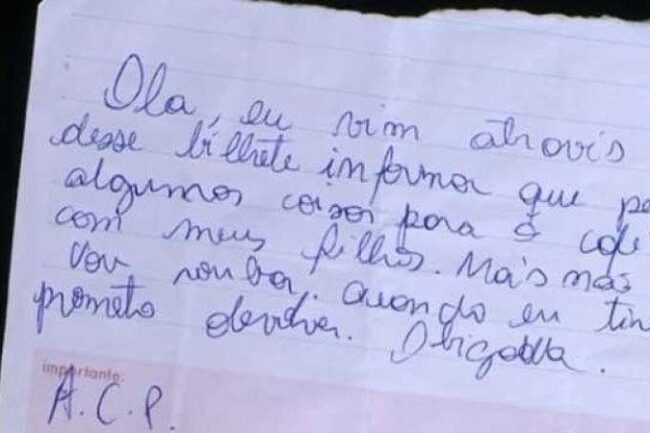 Ola, eu vim atrovis
desse bilhete informar que pe
algumas coisas para o cafe
com meus filhos. Mais não
vou roubar. Quando eu tin
prometo devolver. Obigada.
importante:
A.C.P.